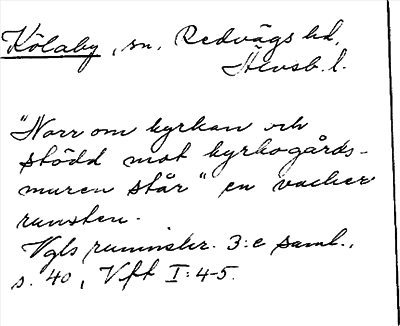 Kölaby, sn, Redvägs hd,
Älvsb. l.
"Norr om kyrkan och
stödd mot kyrkogårds-
muren står" en vacker
runsten.
Vgls runinskr. 3:e saml.,
s. 40, Vft I:4-5.